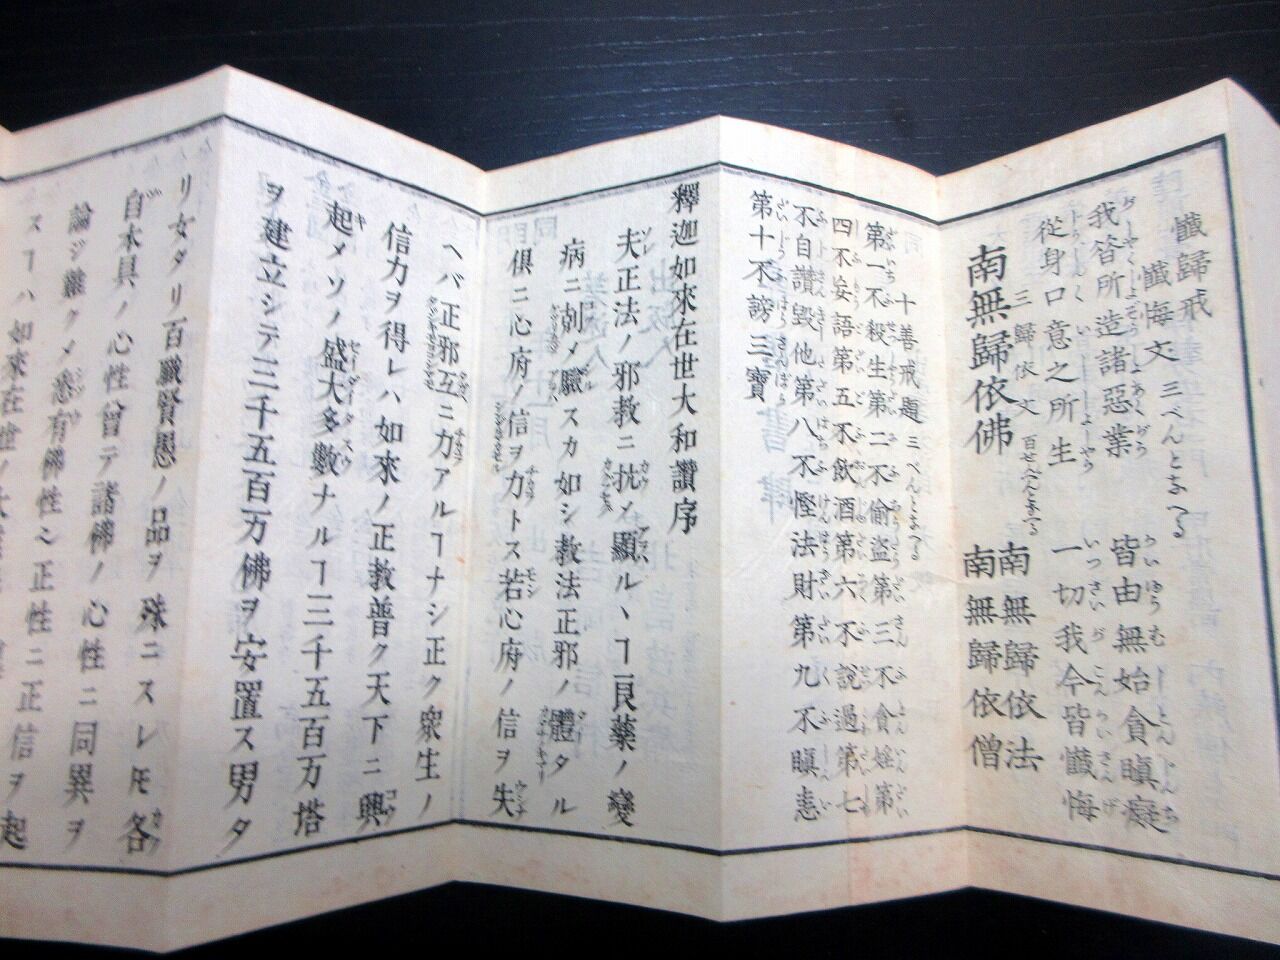 懺歸戒
懺悔文 三べんとなへる
我昔所造諸惡業 皆由無始貪瞋癡
從身口意之所生 一切我今皆懺悔
三歸依文 百せんべんとなへる
南無歸依佛 南無歸依法
南無歸依僧
十善戒題 三べんとなへる
第一不殺生第二不偷盗第三不貪婬第
四不妄語第五不飲酒第六不説過第七
不自讃毀他第八不慳法財第九不瞋恚
第十不謗三寶
釋迦如來在世大和讃序
夫正法ノ邪教ニ抗メ顯ルヽヿ良薬ノ變
病ニ剤メ驗スカ如シ教法正邪ノ體タル
俱ニ心府ノ信ヲ力トス若心府ノ信ヲ失
ヘバ正邪互ニ力アルヿナシ正ク衆生ノ
信力ヲ得レハ如來ノ正教普ク天下ニ興
起メソノ盛大多數ナルヿ三千五百万塔
ヲ建立シテ三千五百万佛ヲ安置ス男タ
リ女タリ百職賢愚ノ品ヲ殊ニスレ𪜈各
自本具ノ心性曾テ諸佛ノ心性ニ同異ヲ
論ジ難クメ悉有佛性ノ正性ニ正信ヲ起
スヿハ如來在世ノ